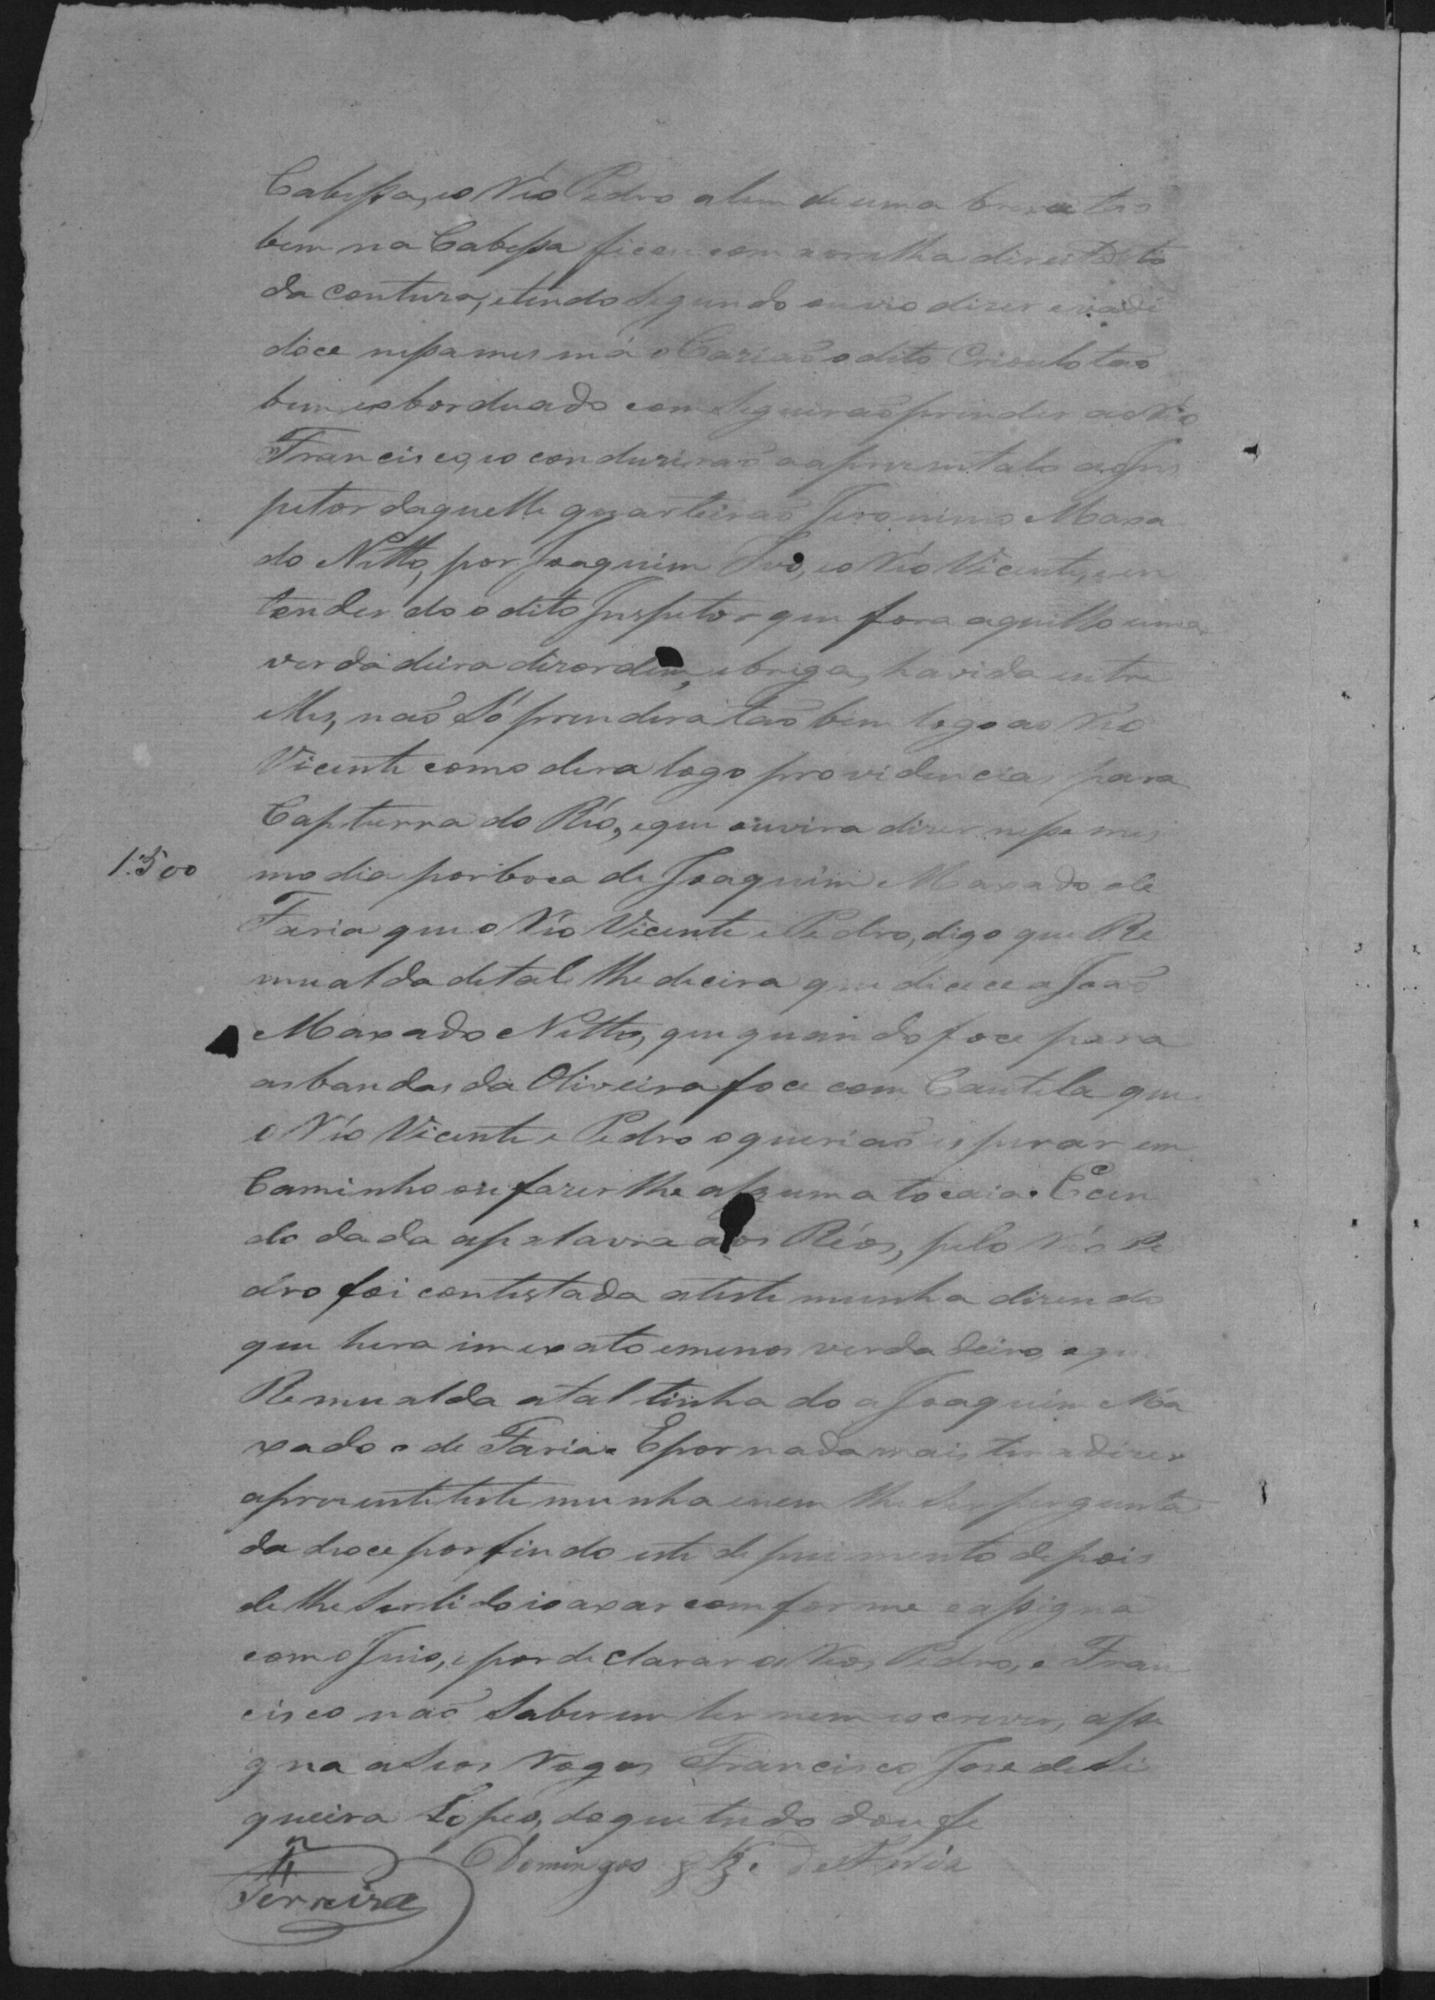 Cabessa, e o Réo Pedro alem de uma brexa tão
bem na Cabessa ficou com a orelha direita
da contuza, e tendo segundo ouvio dizer
dice nessa mesma o Cazião o dito Crioulo tão
bem esborduado comseguirão prender ao Réo
Francisco, e o conduzirão a aprezentalo ao Ins
petor daquelle quarteirão Jeronimo Maxa
do Netto, por Joaquim Ivo, e o Réo Vicente, e en
tendendo o dito Inspetor que fora aquillo uma
verdadeira dizordem, e briga, havida entre
elles, não só prendera tão bem logo ao Réo
Vicente como dera logo providencias para
Capturra do Réo, e que ouvira dizer nesse mes
1.500 mo dia por boca de Joaquim Maxado de
Faria que o Réo Vicente e Pedro, digo que Re
mualda de tal lhe dicera que dicece a João
Maxado Netto, que quando foce para
as bandas da Oliveira foce com Cautela que
o Réo Vicente e Pedro o querião esperar em
Caminho ou fazer lhe alguma tocaia. E cen
do dada a palavra aos Réos, pelo Réo Pe
dro foi contestada a testemunha dizendo
que hera inexato e menos verdadeiro, e que
Remualda a tal tinha do a Joaquim Ma
xado e de Faria. E por nada mais ter a dizer
a prezente testemunha e nem lhe ser pergunta
da doce por findo este depuimento depois
de lhe ser lido io axar comforme e assigna
com o Juis, e por declarar os Réos Pedro, e Fran
cisco não saberem ler nem escrever, assi
gna a seos rogos Francisco Jose de Si
queira Lopes, do que tudo dou fe
Domingos de Faria
Ferreira